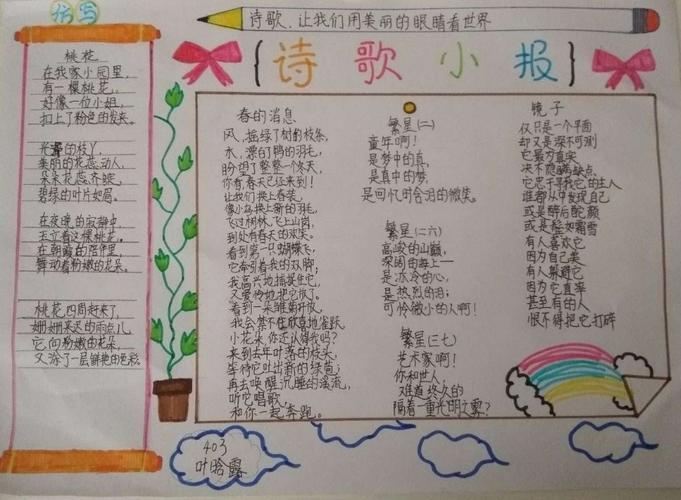 仿写
桃花
在我家小园里,
有一棵桃花,
好像一位小姐,
扣上了粉色的发夹。
美丽的花蕊动人,
朵朵花蕊齐绽,
碧绿的叶片如眉。
在夜晚的寂静中,
玉立着这棵桃花,
在朝霞的陪伴里,
舞动着粉嫩的花朵。
桃花四周赶来了,
姗姗来迟的雨点儿,
它向粉嫩的花朵,
又涂了一层鲜艳的色彩。
诗歌,让我们用美丽的眼睛看世界
{诗歌小报}
春的消息
风,摇绿了树的枝条,
水,漂白了鸭的羽毛,
盼望了整整一个冬天,
你看,春天已经来到!
让我们换上春装,
像小鸟换上新的羽毛,
飞过树林,飞上山岗,
到处有春天的欢笑。
看到第一只蝴蝶飞,
它牵引着我的双脚;
我高兴地捕捉住它,
又爱怜地把它放了。
看到第一朵雏菊开放,
我会禁不住欣喜地雀跃,
小花朵,你还认得我吗?
来到去年叶落的枝头,
等待它吐出新的绿苞;
再去唤醒沉睡的溪流,
听它唱歌,
和你一起奔跑。
繁星(二)
童年啊!
是梦中的真,
是真中的梦,
是回忆时含泪的微笑。
繁星(二六)
高峻的山巅,
深阔的海上——
是冰冷的心,
是热烈的泪;
可怜微小的人啊!
繁星(三七)
艺术家啊!
你和世人,
难道终久的
隔着一重光明之雾?
镜子
仅只是一个平面
却又是深不可测
它最爱真实
决不隐瞒缺点
它忠于寻找它的主人
谁都从中发现自己
或是醉后酡颜
或是鬓如霜雪
有人喜欢它
因为自己美
有人躲避它
因为它直率
甚至有的人
恨不得把它打碎
403
叶晗露